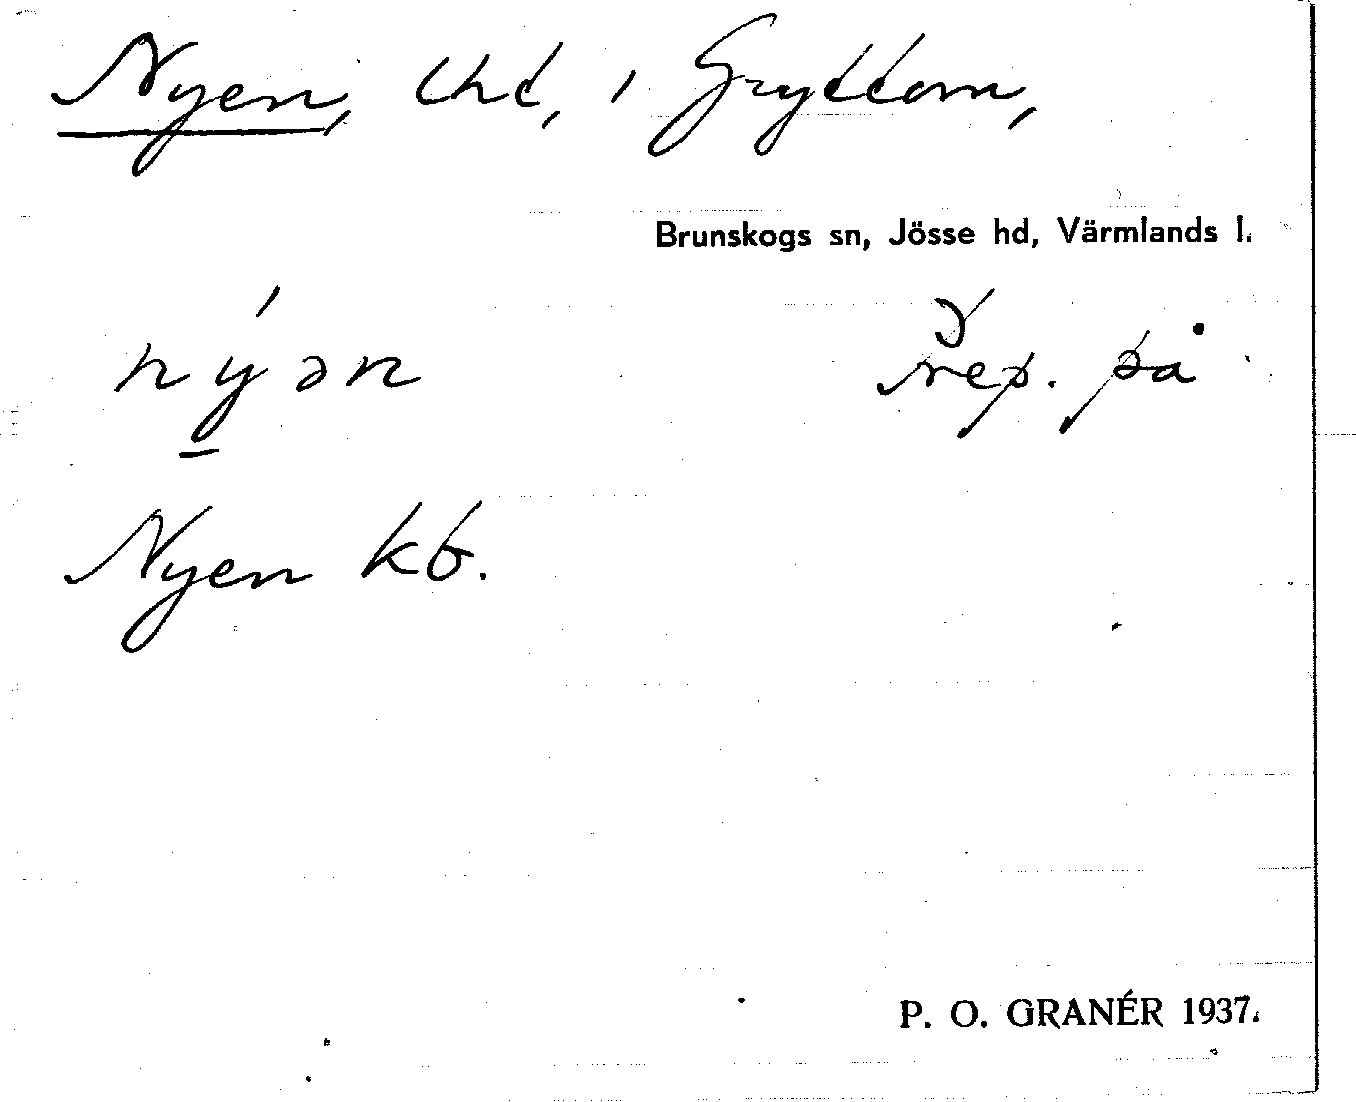 Nyen, lht, i Gryttom,
Brunskogs sn, Jösse hd, Värmlands l.
nýən prep. på
Nyen kb.
P. O. GRANÉR 1937.